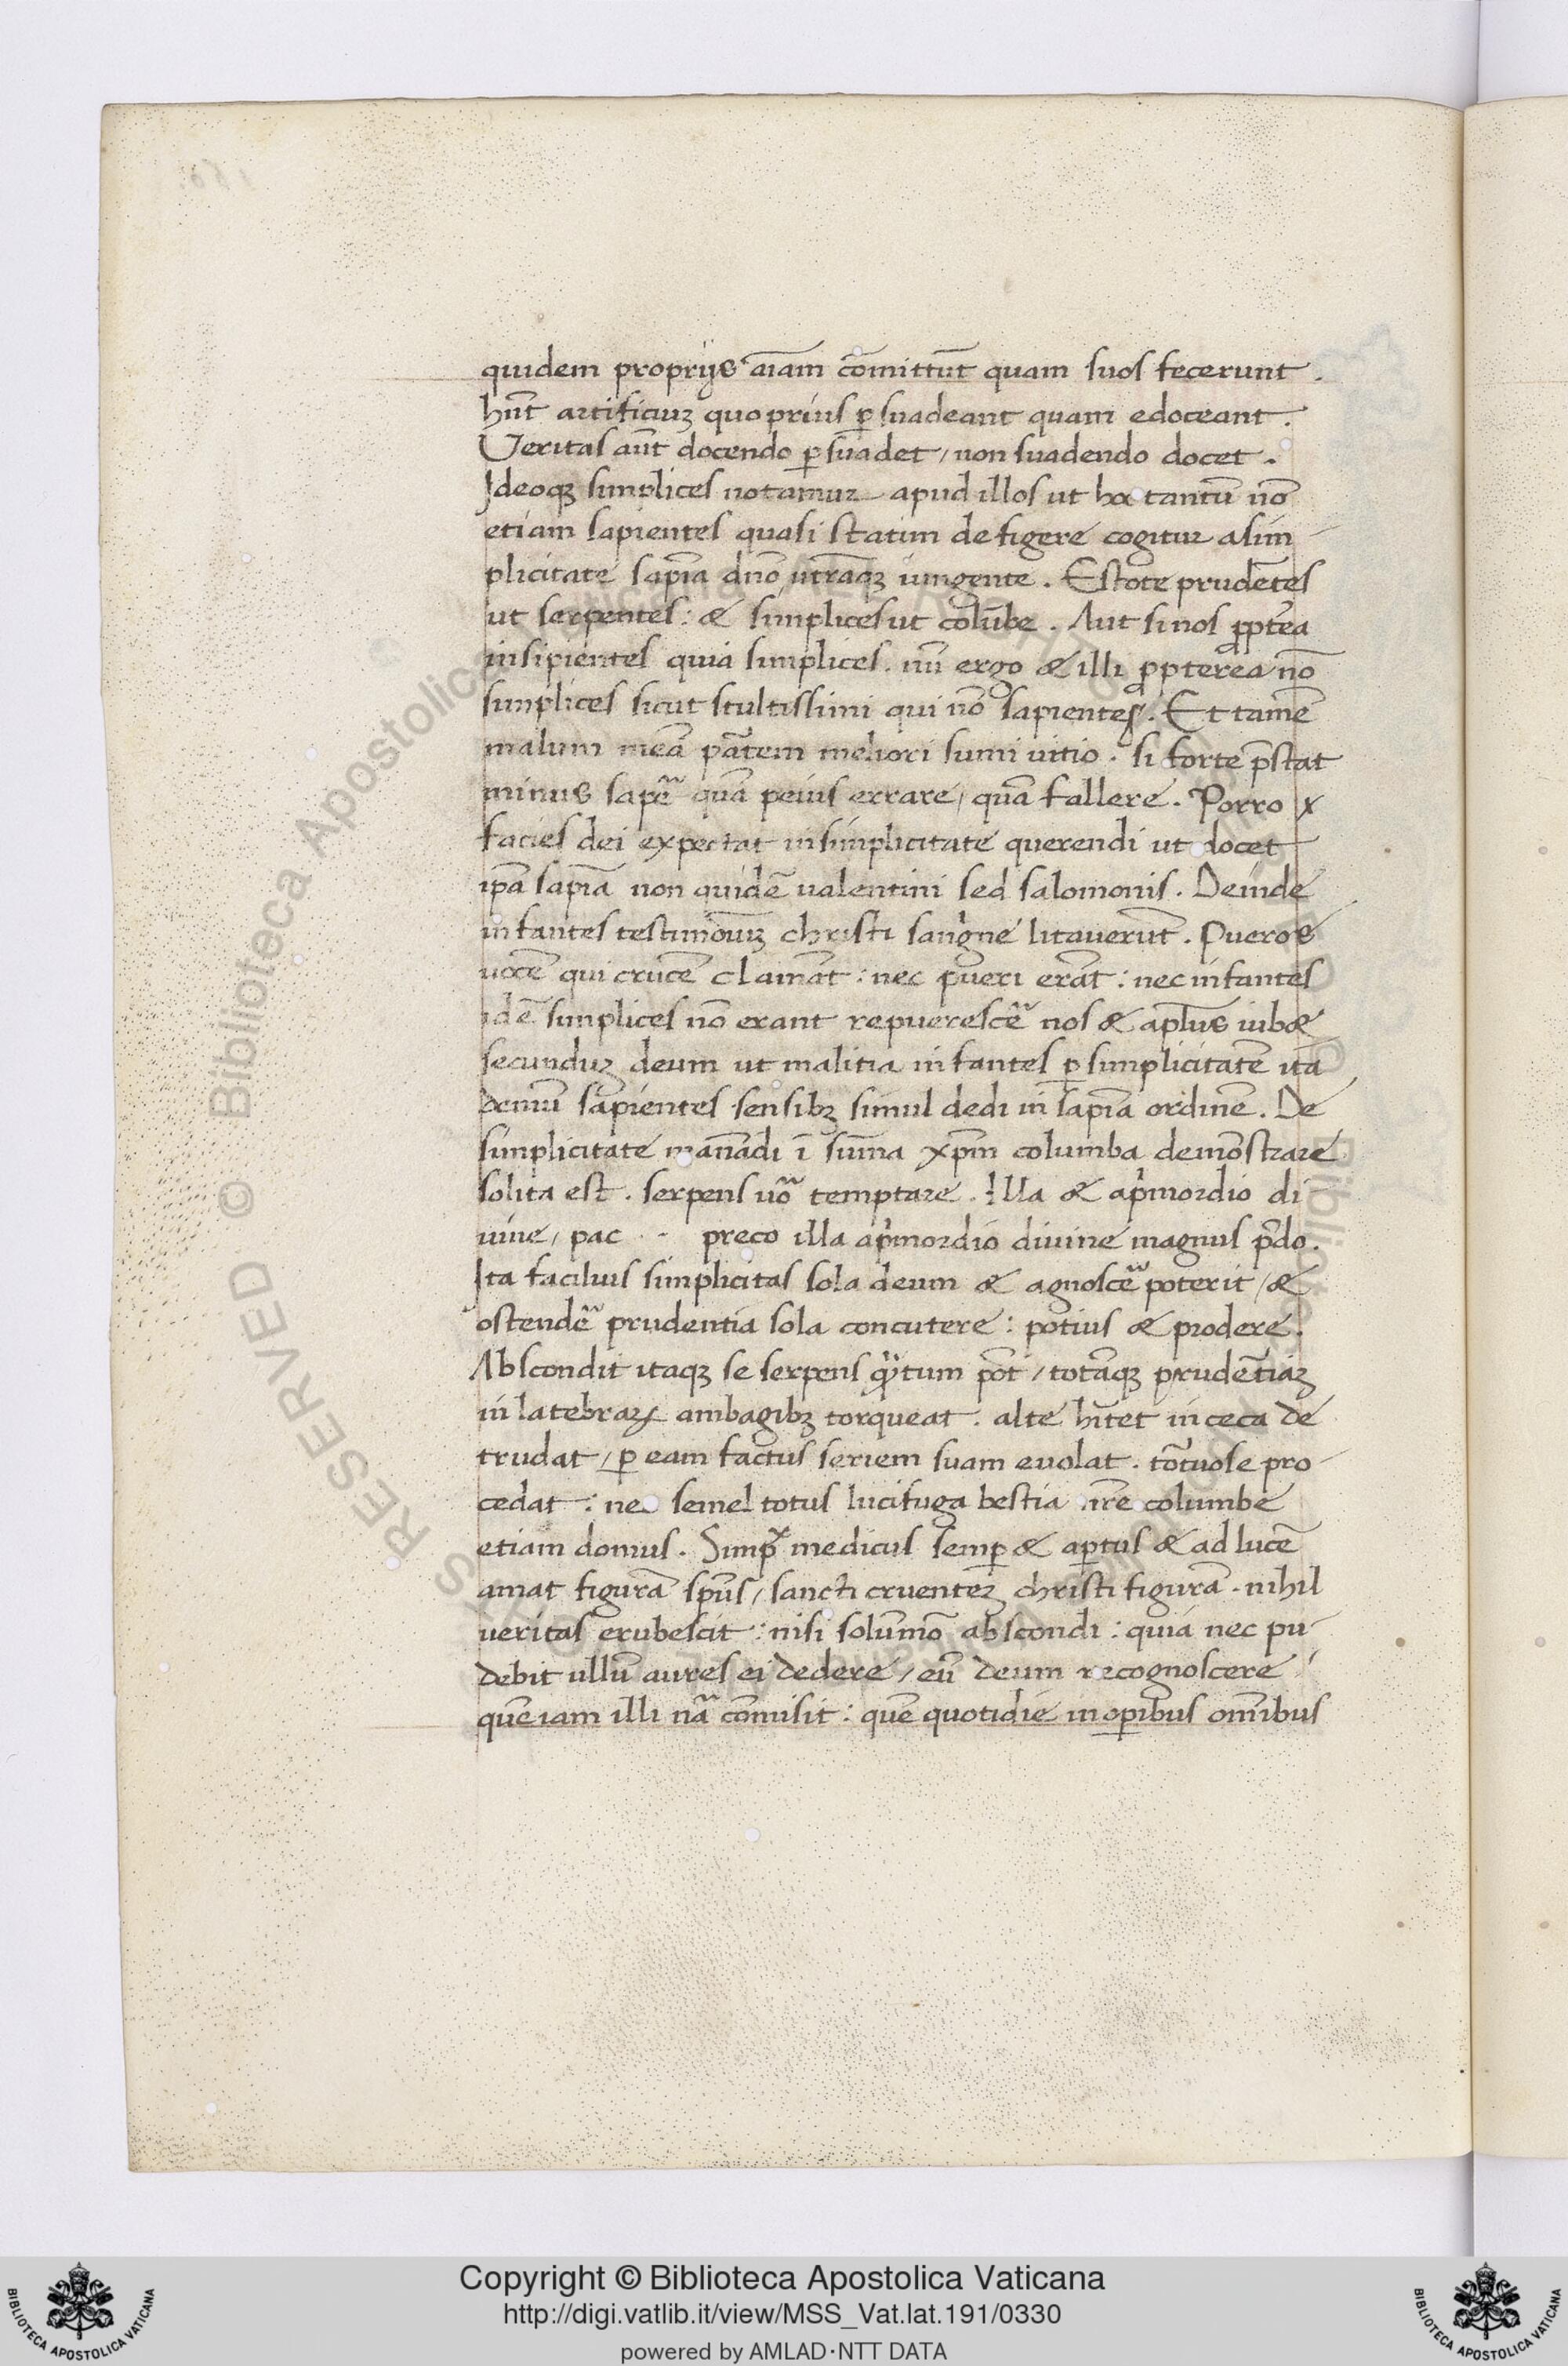 quidem proprijs aīam cōmittūt quam suos fecerunt .
hn̄t artificiuꝫ quo prius ꝑsuadeant quam edoceant .
Veritas aūt docendo ꝑsuadet / non suadendo docet .
Ideoqꝫ simplices notamur apud illos ut hoc tantū nō
etiam sapientes quasi statim defigere cogitur a sim
plicitate sapīa dn̄o utrāqꝫ iungente . Estote prudētes
ut serpentes : & simplices ut colūbe . Aut si nos ꝓptea
insipientes quia simplices . nū ergo & illi ꝓpterea nō
simplices sicut stultissimi qui nō sapientes . Et tamē
malum meā ptātem meliori sumi vitio . si forte p̄stat
minus sapē quā peius errare / quā fallere . Porro x
facies dei expectat in simplicitate querendi ut docet
ip̄a sapīa non quidē valentini sed salomonis . Deinde
infantes testimoniuꝫ christi sangne litaverūt . Pueros
vocē qui crucē clamāt : nec pueri erāt : nec infantes
idē simplices nō erant repuerescē nos & apl̄us iubet
secunduꝫ deum ut malitia infantes ꝑ simplicitatē ita
demū sapientes sensibꝫ simul dedi in sapīa ordinē . De
simplicitate manādi ī sūma xp̄m columba demōstrare
solita est . serpens vō temptare . Illa & a pͥmordio di
vine / pac · · preco illa a pͥmordio divine magnus p̄do .
Ita facilius simplicitas sola deum & agnoscē poterit / &
ostendē prudentia sola concutere : potius & prodere .
Abscondit itaqꝫ se serpens q̄tum pōt / totāqꝫ prudētiaꝫ
in latebraꝝ ambagibꝫ torqueat . alte hītet in ceca de
trudat / ꝑ eam factus seriem suam evolat . tōtuose pro
cedat : ne semel totus lucifuga bestia nr̄e columbe
etiam domus . Simp̄x medicus semꝑ & aꝑtus & ad lucē
amat figurā sp̄us / sancti cruenteꝫ christi figurā . nihil
veritas erubescit : nisi solūmō abscondi : quia nec pu
debit ullū aures ei dedere / eū deum recognoscere
quē iam illi nā cōmisit : quē quotidie in oꝑibus omībus
Copyright © Biblioteca Apostolica Vaticana
http://digi.vatlib.it/view/MSS_Vat.lat.191/0330
powered by AMLAD·NTT DATA